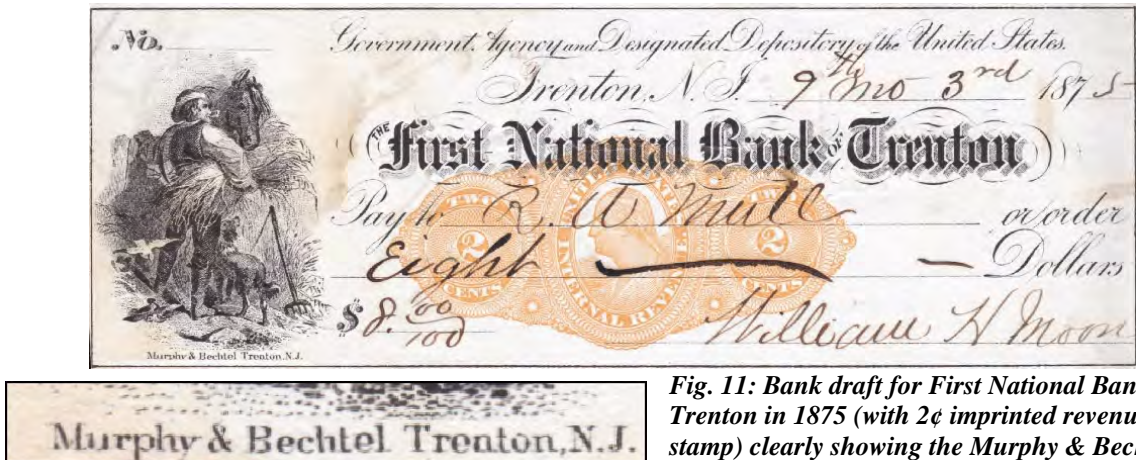 No.
Government Agency and Designated Depository of the United States.
Trenton, N. J. 9th mo 3rd 1875
THE First National Bank OF Trenton
Pay to R. A Mull or order
Eight — Dollars
$ 8.00/100
William H Moon
UNITED STATES
TWO 2 CENTS
INTERNAL REVENUE
TWO 2 CENTS
Murphy & Bechtel Trenton, N.J.
Murphy & Bechtel Trenton, N.J.
Fig. 11: Bank draft for First National Ban
Trenton in 1875 (with 2¢ imprinted revenu
stamp) clearly showing the Murphy & Bec